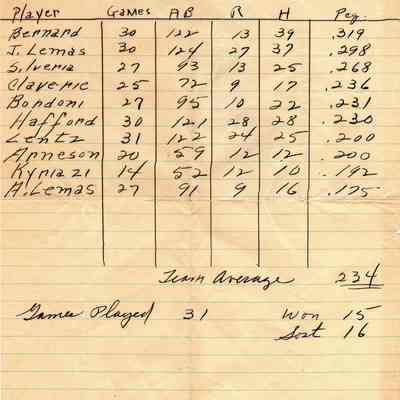 Player Games AB R H Pcg.
Bernard 30 122 13 39 .319
J. Lemas 30 124 27 37 .298
Silveria 27 93 13 25 .268
Claverie 25 72 9 17 .236
Bordoni 27 95 10 22 .231
Hafford 30 121 28 28 .230
Lentz 31 122 24 25 .200
Arneson 20 59 12 12 .200
Kyriazi 14 52 12 10 .192
A. Lemas 27 91 9 16 .175
Team Average 234
Games Played 31 Won 15
Lost 16